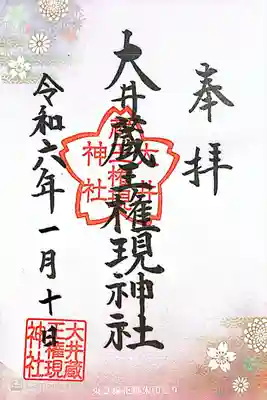 奉拝
大井蔵王権現神社
令和六年一月十日
大井蔵王権現神社
大井蔵王権現神社